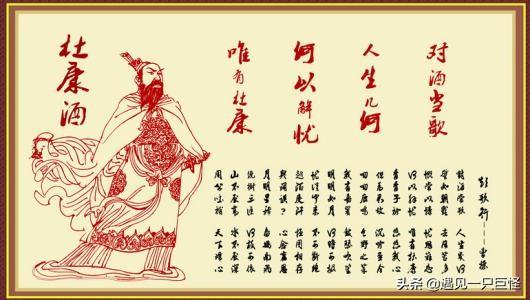 对酒当歌
人生几何
何以解忧
唯有杜康
杜康酒
短歌行——曹操
对酒当歌 人生几何
譬如朝露 去日苦多
慨当以慷 忧思难忘
何以解忧 唯有杜康
青青子衿 悠悠我心
但为君故 沉吟至今
呦呦鹿鸣 食野之苹
我有嘉宾 鼓瑟吹笙
明明如月
忧从中来 不可断绝
越陌度阡 枉用相存
阔谈? 心念旧恩
月明星稀 乌鹊南飞
绕树三匝 何枝可依
山不厌高 水不厌深
周公吐哺 天下归心
头条 @遇见一只巨怪